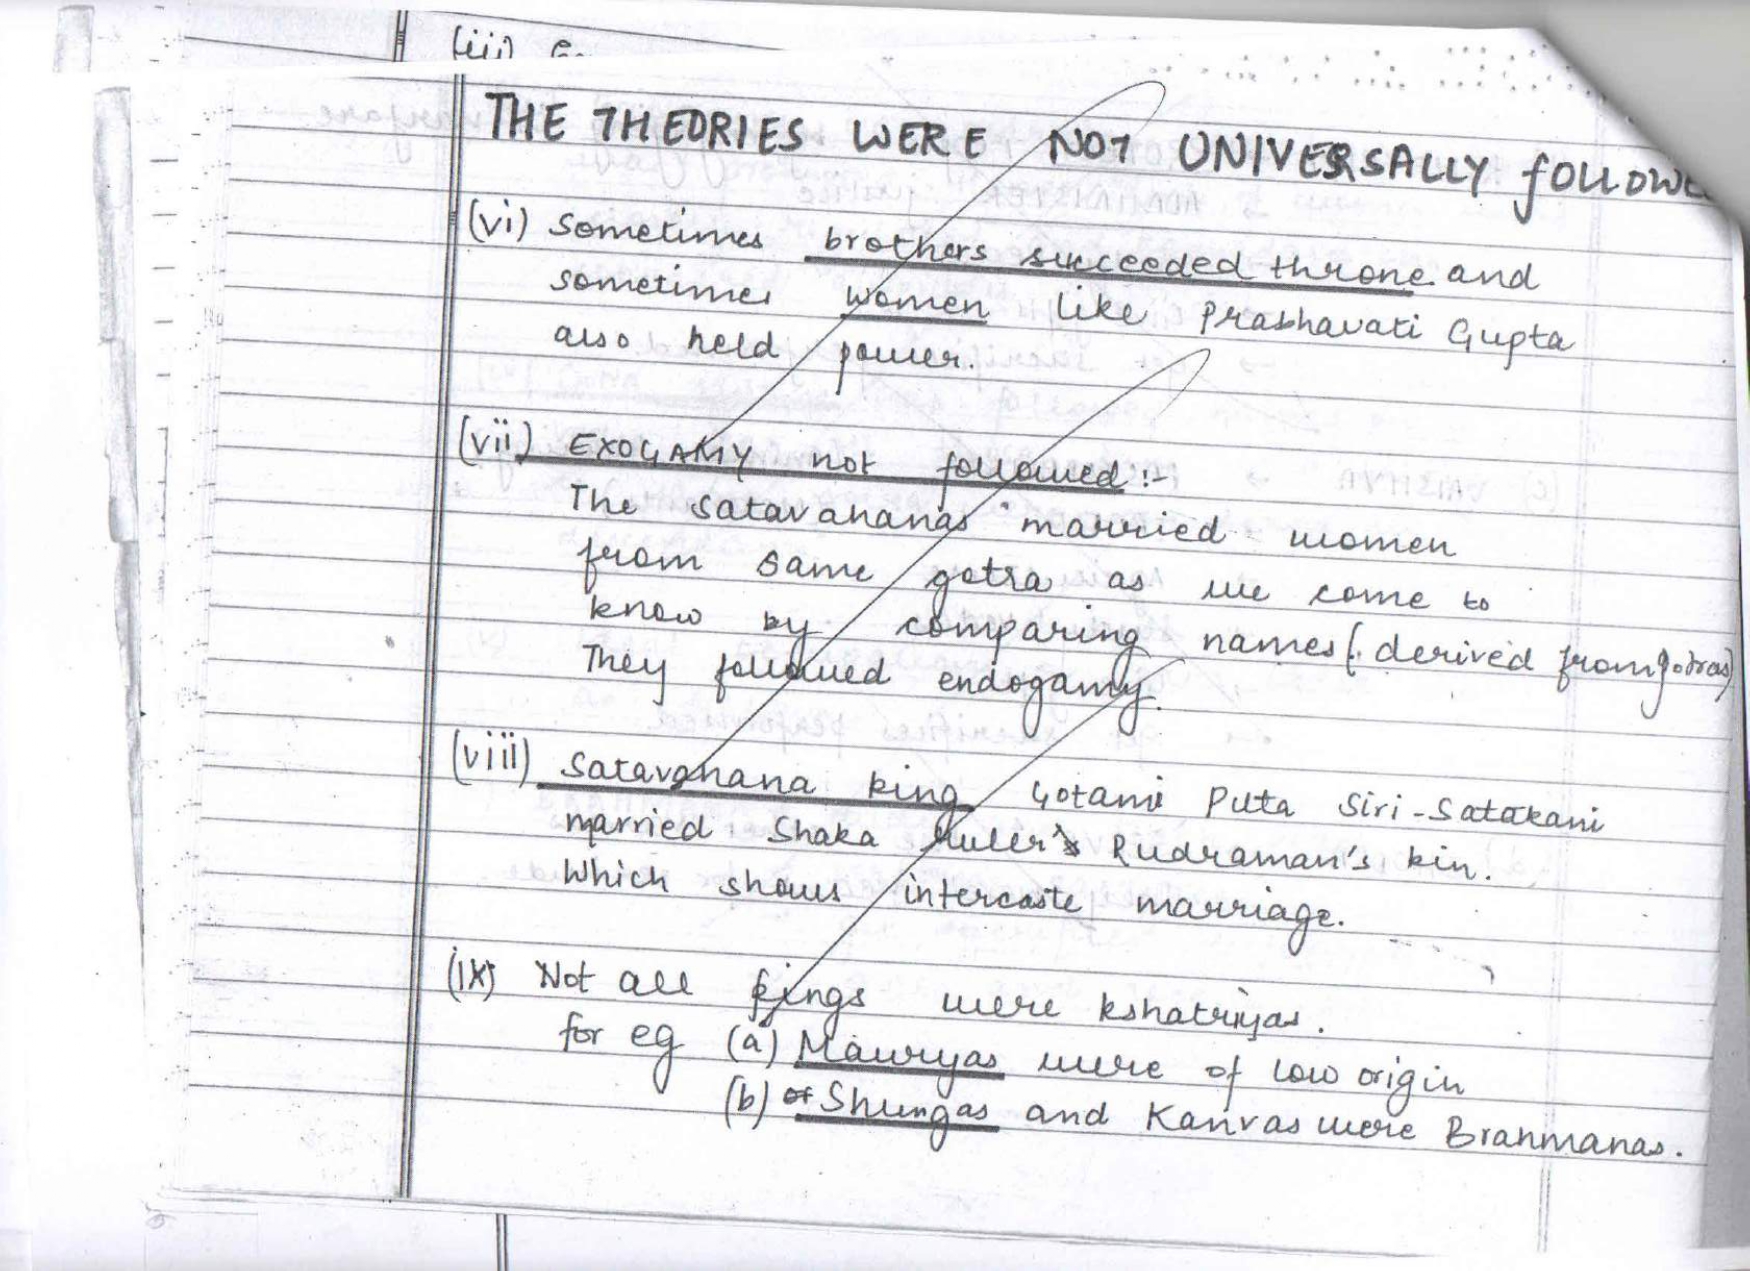 (iii)
THE THEORIES WERE NOT UNIVERSALLY FOLLOWE
(vi) Sometimes brothers succeeded throne and
sometimes women like Prabhavati Gupta
also held power.
(vii) EXOGAMY not followed :-
The Satavahanas married women
from same gotra as we come to
know by comparing names (derived from gotras)
They followed endogamy.
(viii) Satavahana king Gotami Puta Siri-Satakani
married Shaka Ruler's Rudraman's kin.
Which shows intercaste marriage.
(ix) Not all kings were kshatriyas.
for eg (a) Mauryas were of low origin
(b) of Shungas and Kanvas were Brahmanas.